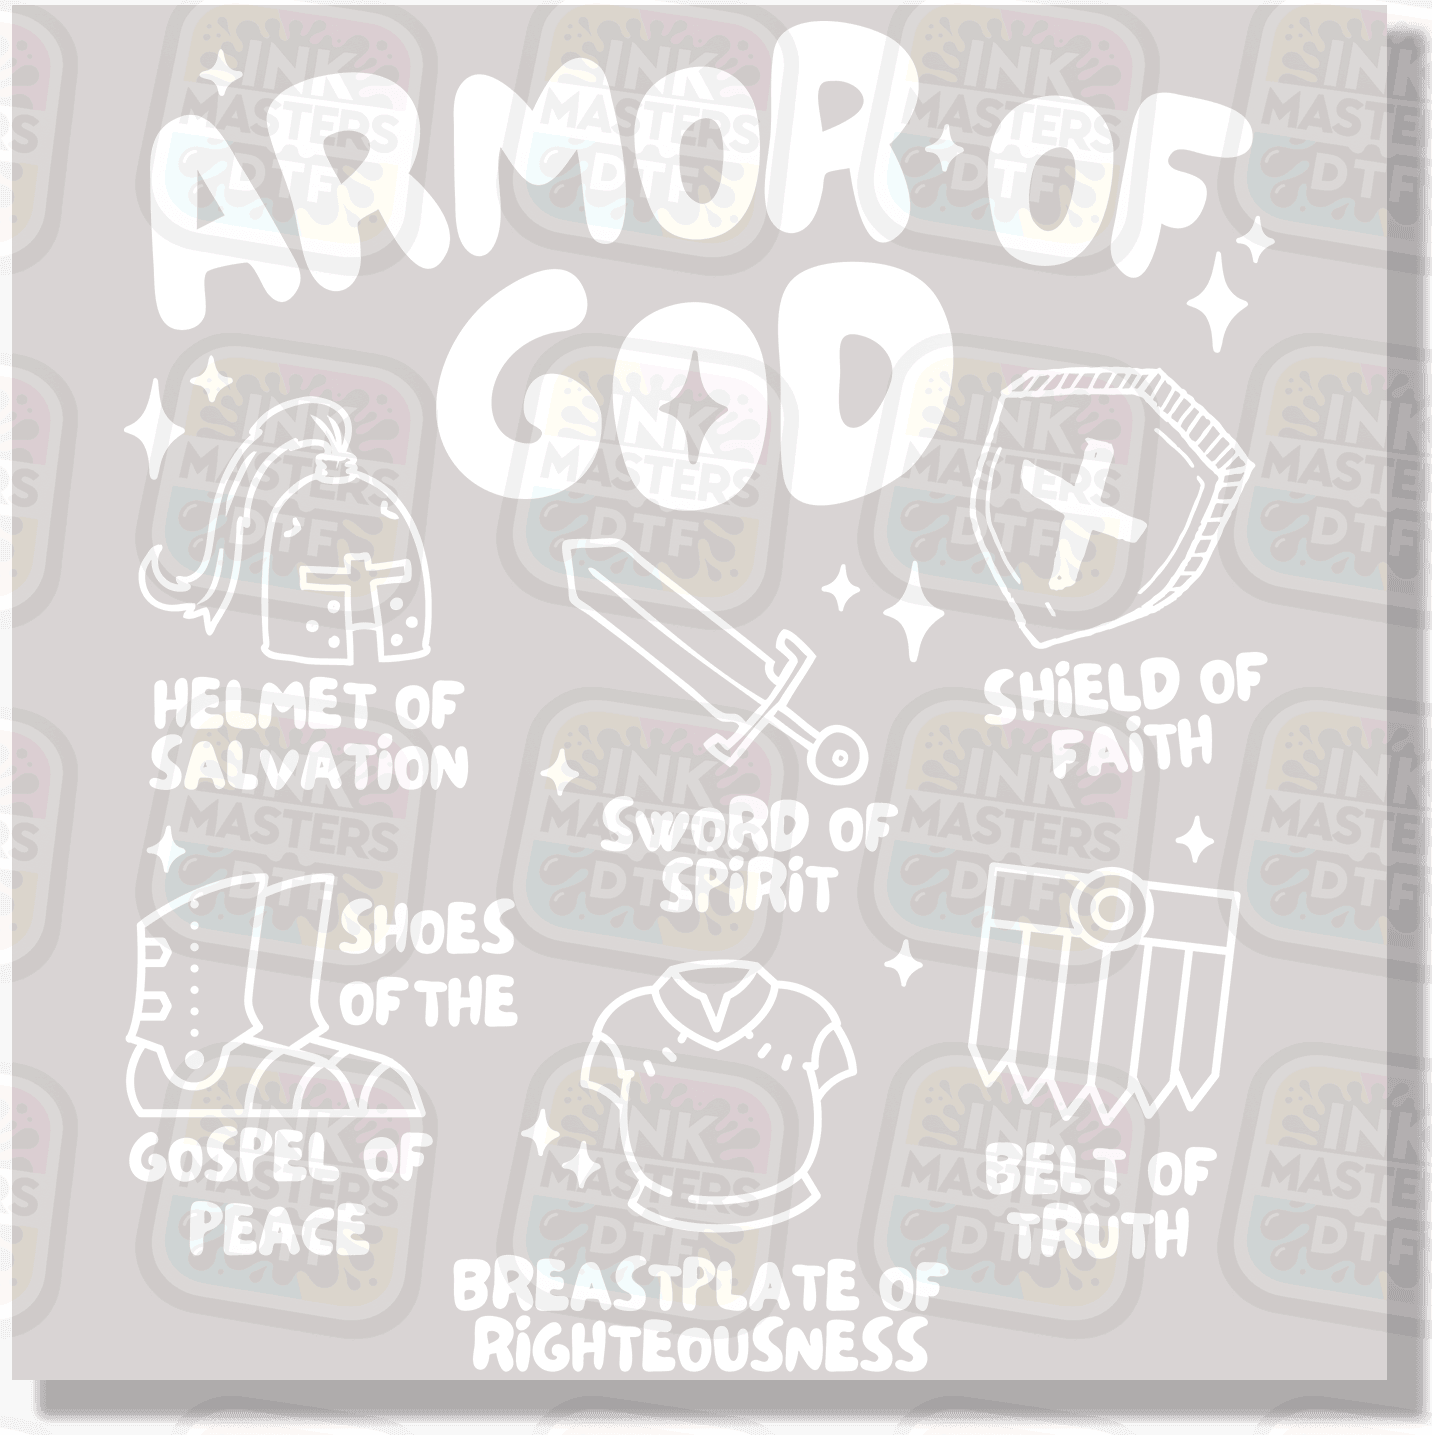 ARMOR OF
GOD
HELMET OF
SALVATiON
SWORD OF
SPiRiT
SHiELD OF
FAiTH
SHOES
OF THE
GOSPEL OF
PEACE
BREASTPLATE OF
RiGHTEOUSNESS
BELT OF
TRUTH
INK
MASTERS
DTF